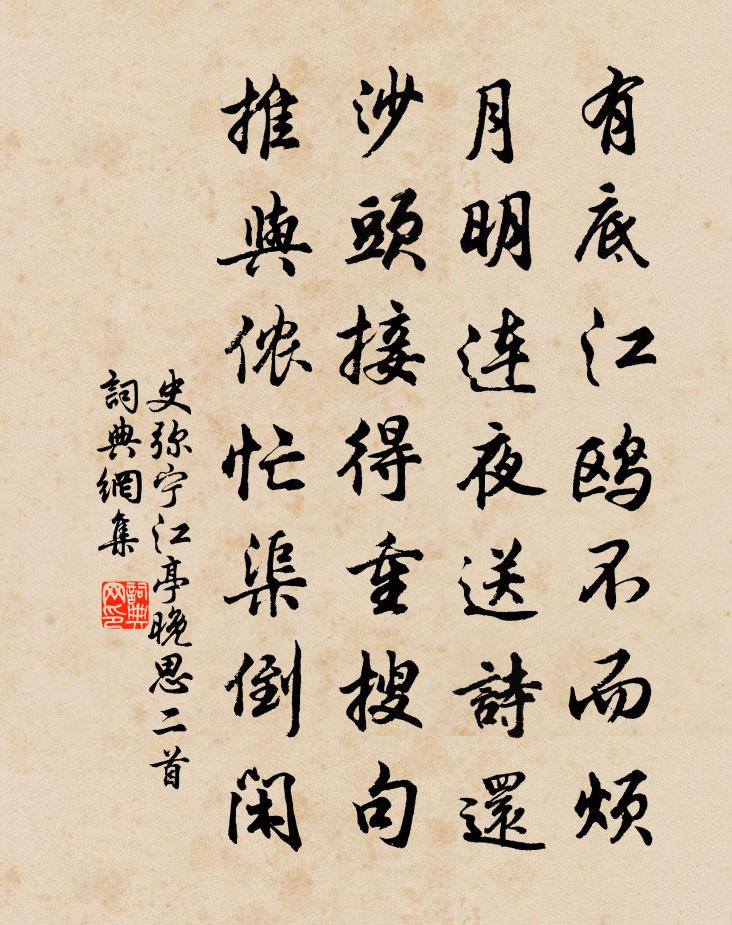 有底江鸥不而煩
月明連夜送詩還
沙頭接得重搜句
推與侬忙渠倒閑
史弥宁江亭晚思二首
詞典網集
詞典网印